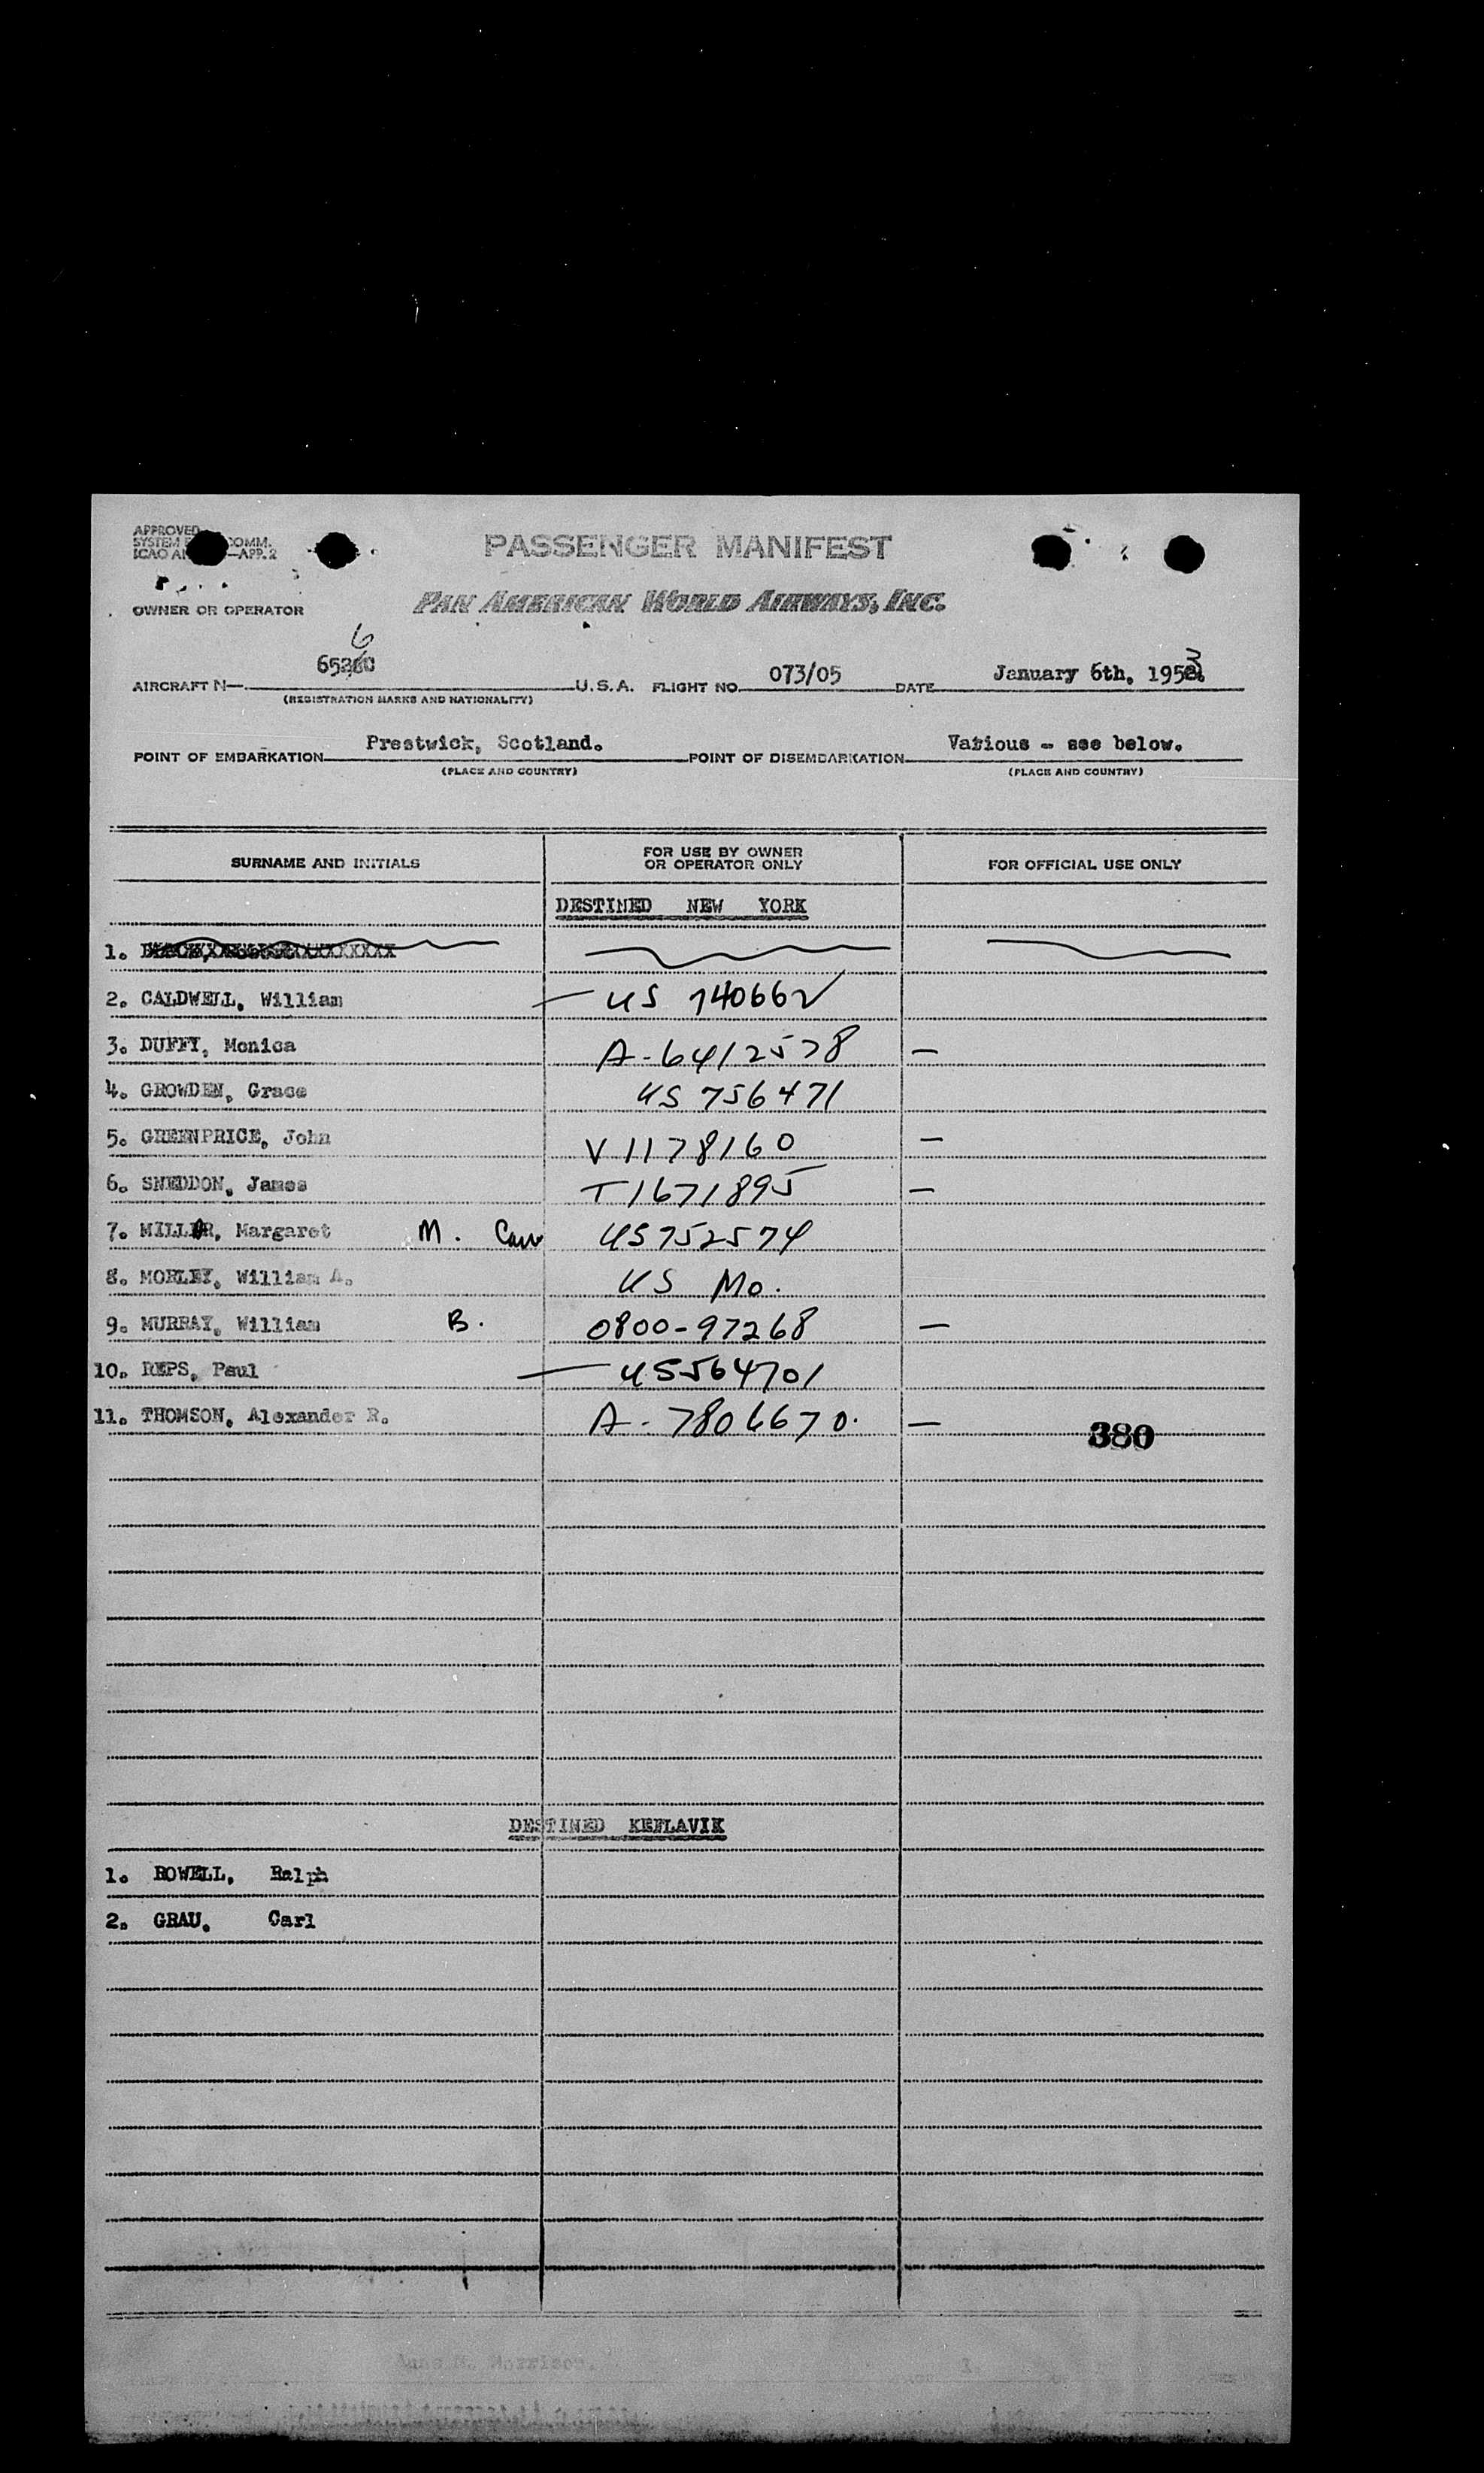 PASSENGER MANIFEST
OWNER OR OPERATOR PAN AMERICAN WORLD AIRWAYS, INC.
AIRCRAFT N— U.S.A. FLIGHT NO. 073/05 DATE January 6th, 1953
(REGISTRATION MARKS AND NATIONALITY)
POINT OF EMBARKATION Prestwick, Scotland. POINT OF DISEMBARKATION Various - see below.
(PLACE AND COUNTRY) (PLACE AND COUNTRY)
SURNAME AND INITIALS FOR USE BY OWNER OR OPERATOR ONLY FOR OFFICIAL USE ONLY
DESTINED NEW YORK
1.
2. CALDWELL, William — US 740662
3. DUFFY, Monica A-6412578 —
4. GROWDEN, Grace US 756471
5. GREENPRICE, John V1178160 —
6. SNEDDON, James T1671895 —
7. MILLAR, Margaret M. US752574
8. MORLEY, William A. US Mo.
9. MURRAY, William B. 0800-97268 —
10. REPS, Paul — US564701
11. THOMSON, Alexander R. A-7806670. —
380
DESTINED KEFLAVIK
1. ROWELL, Ralph
2. GRAU, Carl
Morrison.